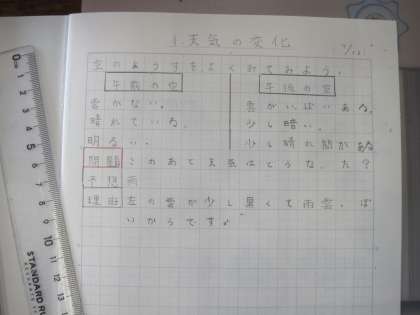 1.天気の変化
空のようすをよくみてみよう。
午前の空 午後の空
雲がない。 雲がいっぱいある。
晴れている。 少し暗い。
明るい。 少し晴れ間がある
問題 このあと天気はどうなった?
予想 雨
理由 左の雲が少し黒くて雨雲っぽ
いからです。
0 1 2 3 4 5 6 7 8 9 10 11 12 13
STANDARD